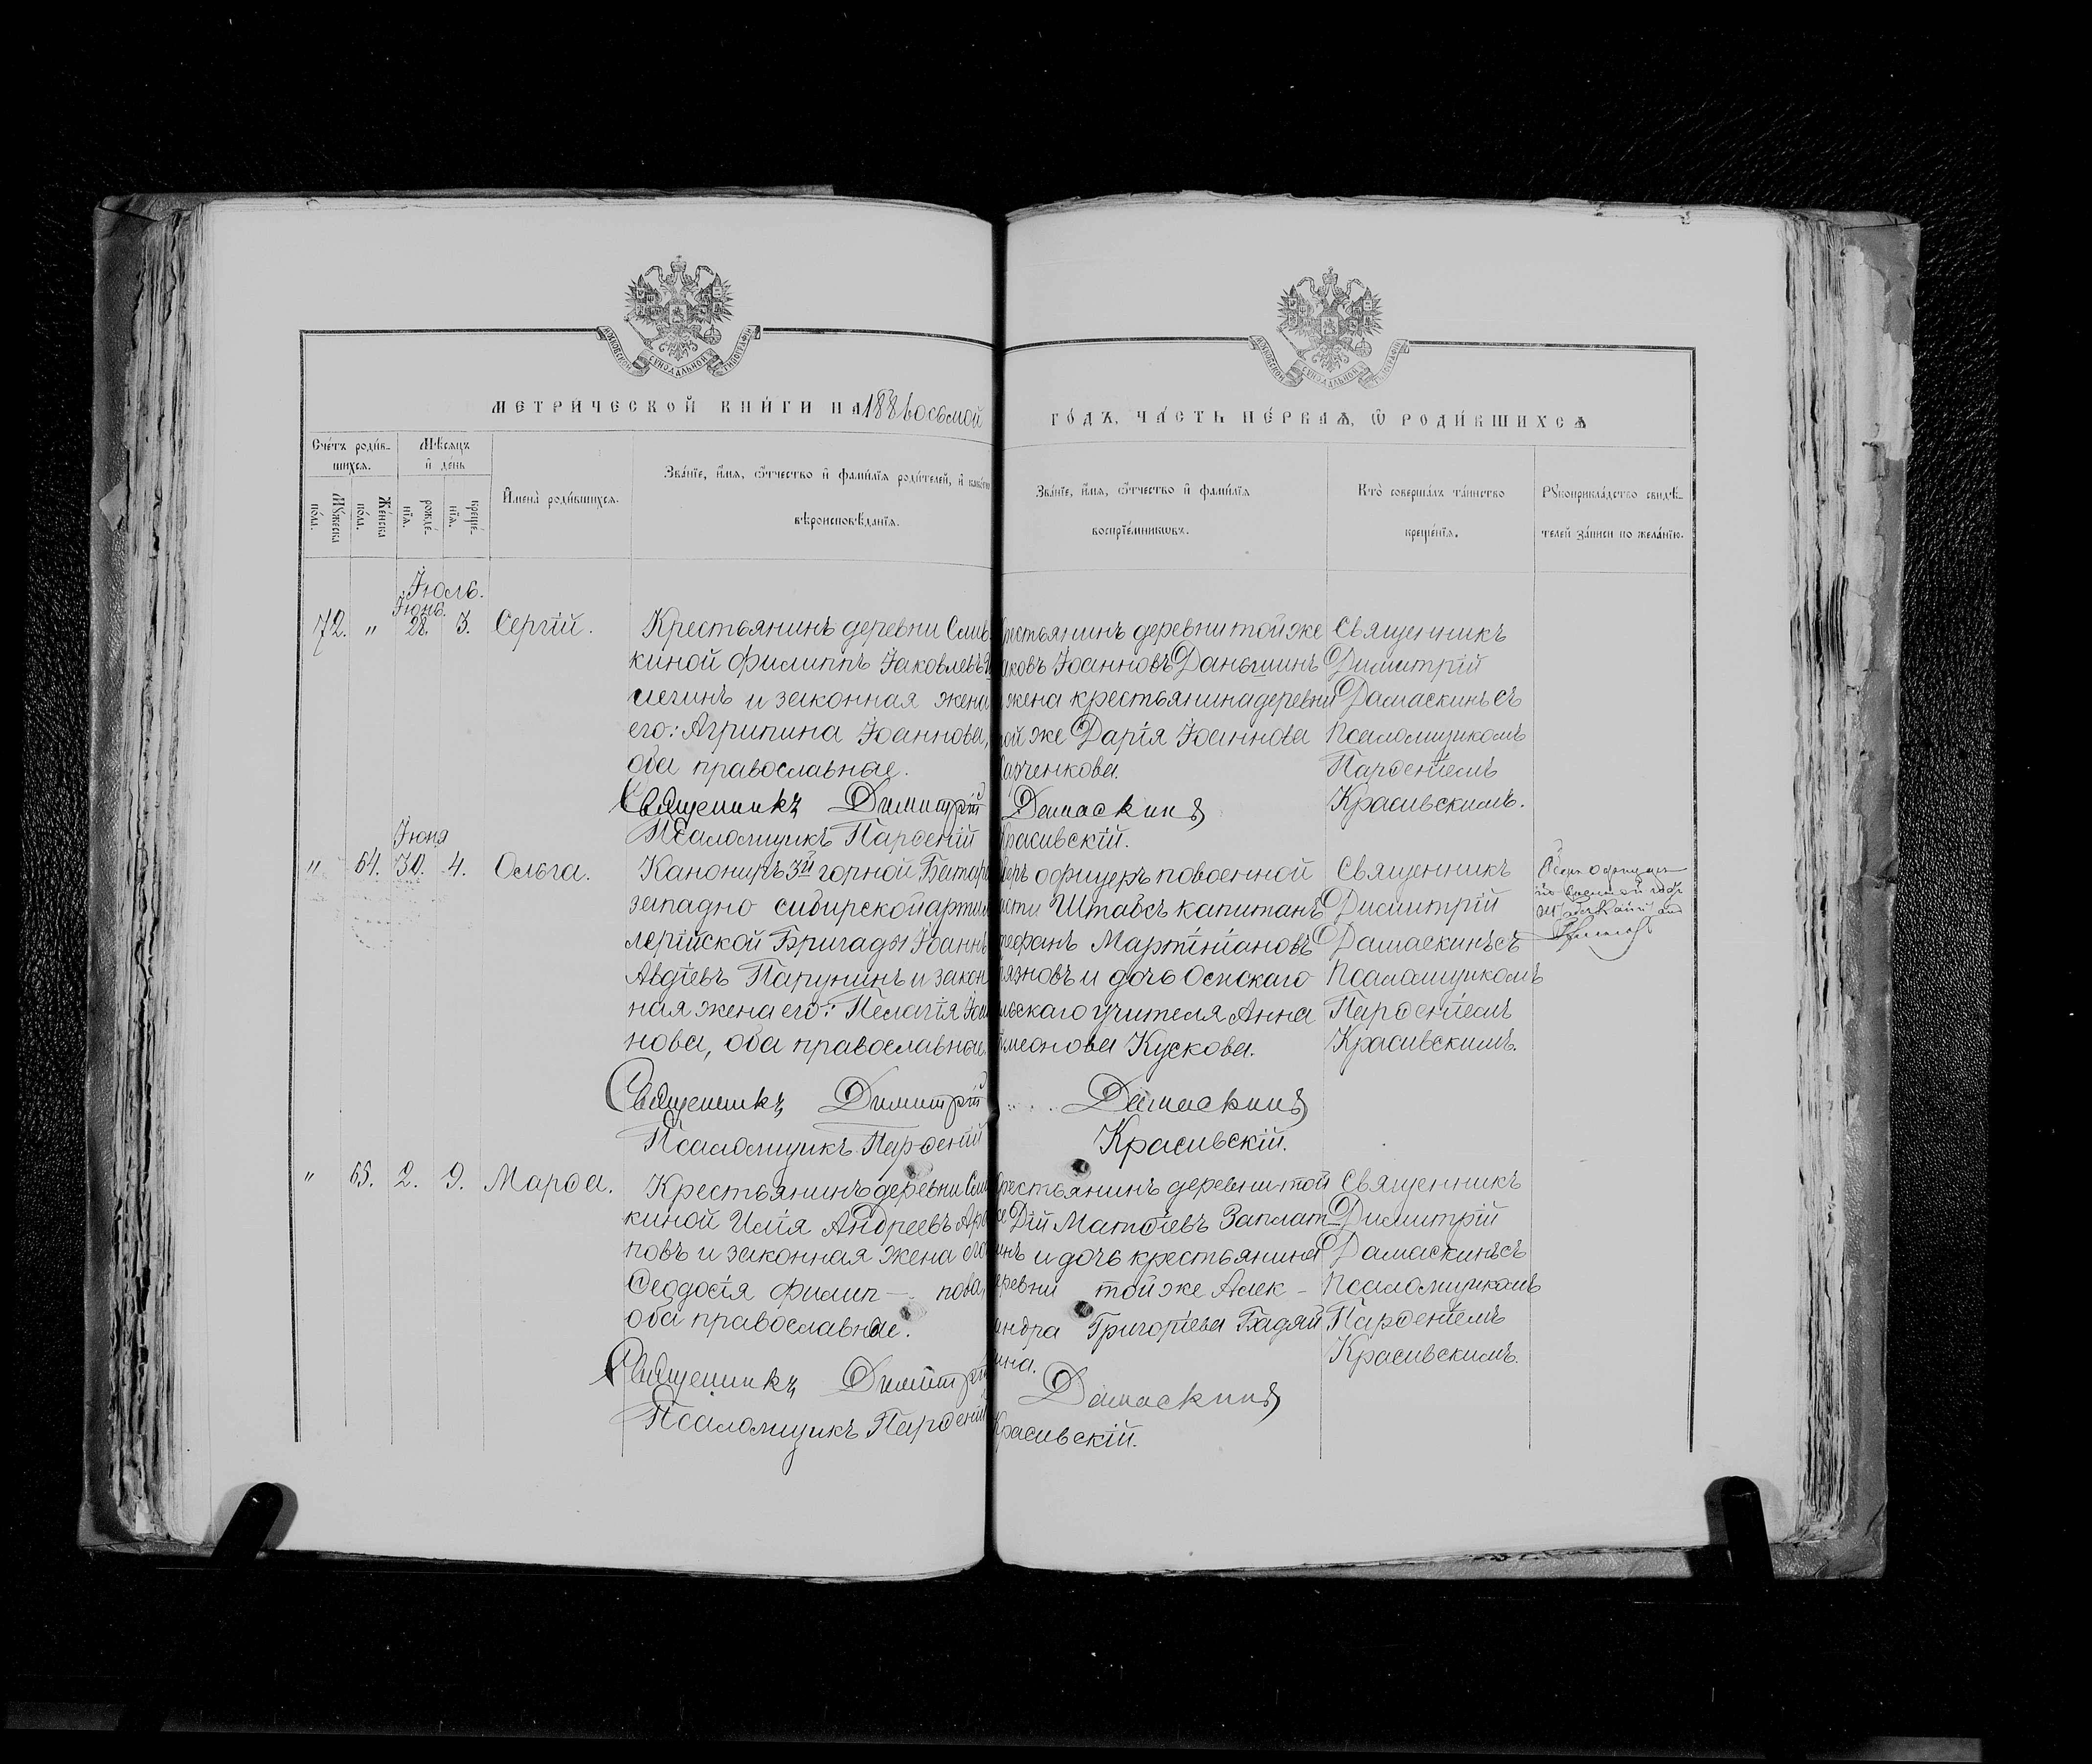 МЕТРИЧЕСКОЙ КНИГИ НА 188 восьмой
ГОДЪ, ЧАСТЬ ПЕРВАЯ, Ѡ РОДИВШИХСЯ
Счетъ родив-
шихся.
Мѣсяцъ
и день
Мужеска
полъ.
Женска
полъ.
рожде-
нїя.
креще-
нїя.
Имена родившихся.
Званїе, имя, ѿчество и фамилїя родителей, и
вѣроисповѣданїя.
Званїе, имя, ѿчество и фамилїя
воспрїемниковъ.
Кто совершалъ таинство
крещенїя.
Рукоприкладство свидѣ-
телей записи по желанїю.
Іюль.
Іюнь.
72. " 28. 3. Сергій.
Крестьянинъ деревни
киной Филиппъ Іаковлевъ
и законная жена
его: Агрипина Іоаннова,
оба православные.
Священникъ Димитрій
Псаломщикъ Парѳеній
крестьянинъ деревни той же
Іаковъ Іоанновъ Даньшинъ
и жена крестьянина деревни
той же Дарія Іоаннова
Дамаскинъ
Красивскій.
Священникъ
Димитрій
Дамаскинъ съ
Псаломщикомъ
Парѳеніемъ
Красивскимъ.
Іюня
" 64. 30. 4. Ольга.
Канониръ 3й горной Батаре
западно сибирской артил
лерійской Бригады Іоаннъ
Авдіевъ Парунинъ и закон
ная жена его: Пелагія Іоан
нова, оба православные.
Священникъ Димитрій
Псаломщикъ Парѳеній
офицеръ по военной
части Штабсъ капитанъ
Стефанъ Мартініановъ
и дочь Оспскаго
сельскаго учителя Анна
Симеонова Кускова.
Дамаскинъ
Красивскій.
Священникъ
Димитрій
Дамаскинъ съ
Псаломщикомъ
Парѳеніемъ
Красивскимъ.
" 65. 2. 9. Марѳа.
Крестьянинъ деревни
киной Илія Андреевъ
повъ и законная жена его
Ѳеодосія Филип- пова,
оба православные.
Священникъ Димитрій
Псаломщикъ Парѳеній
Крестьянинъ деревни той
же Дій Матѳіевъ Заплат-
инъ и дочь крестьянина
деревни той же Алек-
андра Григоріева Бадяй
ина.
Дамаскинъ
Красивскій.
Священникъ
Димитрій
Дамаскинъ съ
Псаломщикомъ
Парѳеніемъ
Красивскимъ.